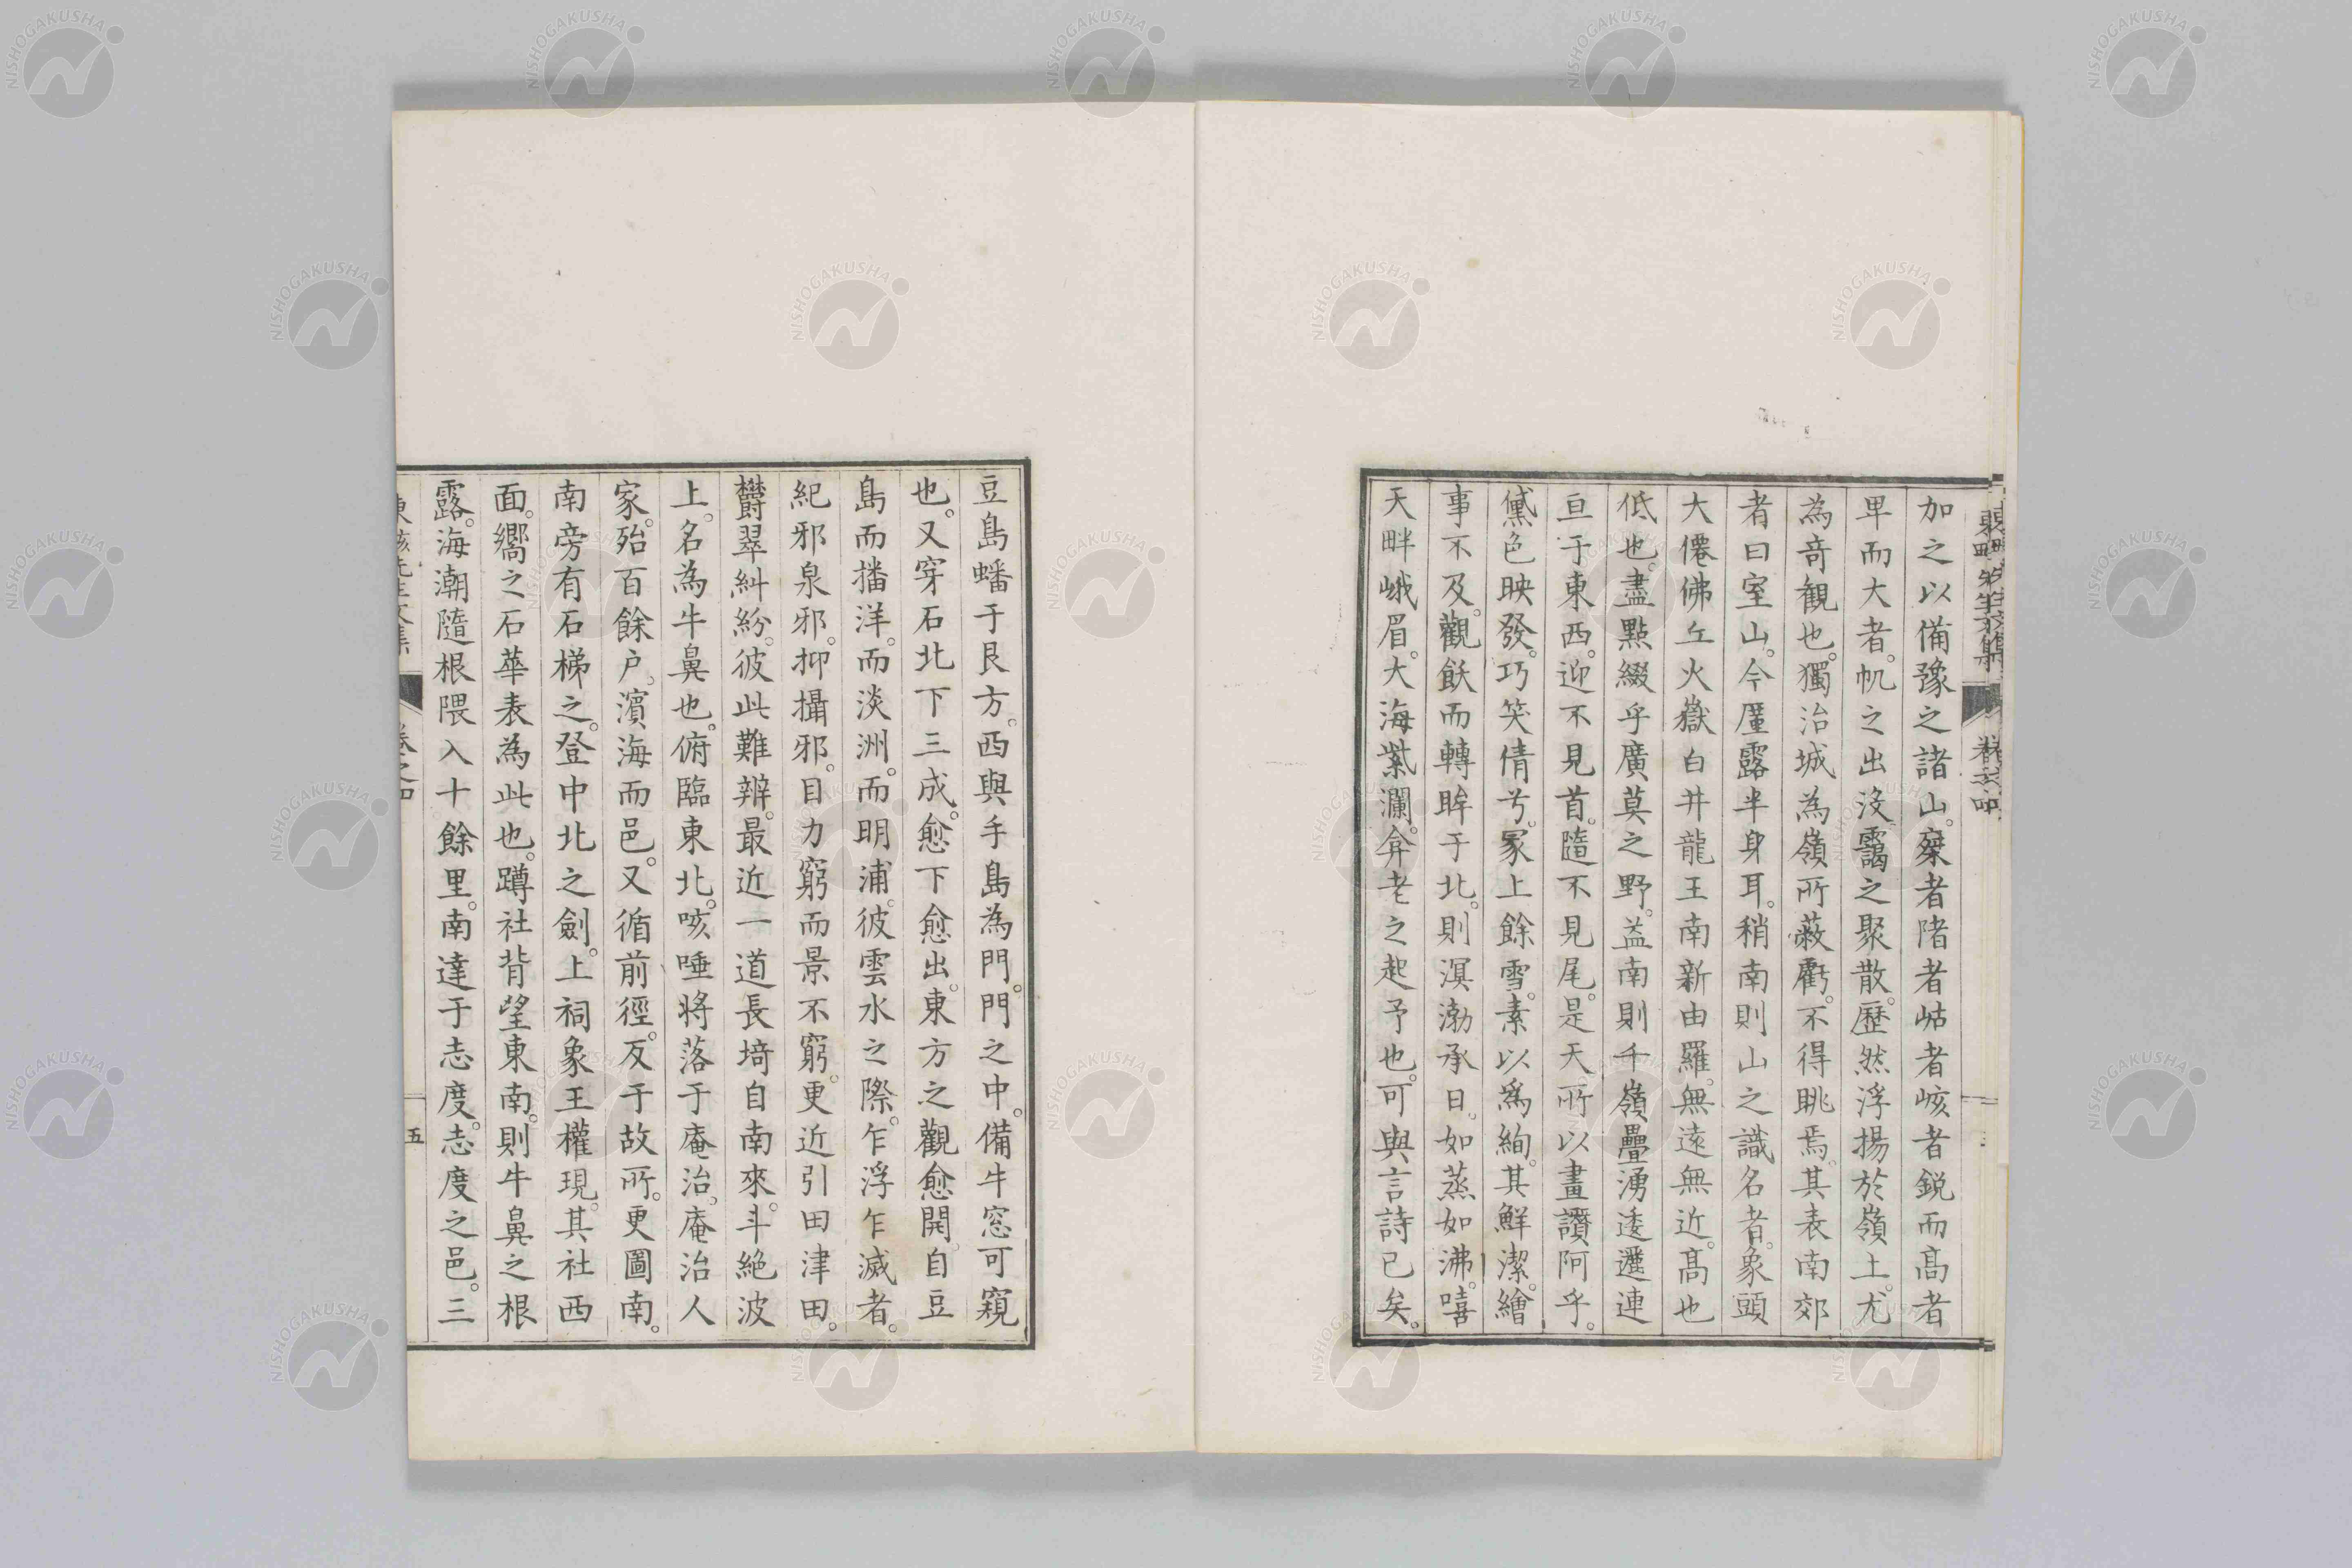 加之以備豫之諸山。桀者陼者岵者峐者鋭而髙者
卑而大者。帆之出没靄之聚散。歷然浮揚於嶺上。尤
為竒観也。獨治城為嶺所蔽虧。不得眺焉。其表南郊
者曰室山。今厪露半身耳。稍南則山之識名者。象頭
大僊佛丘火嶽白井龍王南新由羅。無遠無近。髙也
低也。盡點綴乎廣莫之野。益南則千嶺疊湧逶邐連
亘于東西。迎不見首。隨不見尾。是天所以畫讚阿乎。
黛色映發。巧笑倩兮。冢上餘雪。素以為絢。其鮮潔。繪
事不及。觀飫而轉眸于北。則溟渤承日。如蒸如沸。嘻
天畔峨眉。大海紫瀾。弇老之起予也。可與言詩已矣。
豆島蟠于艮方。西與手島為門。門之中。備牛窓可窺
也。又穿石北下三成。愈下愈出。東方之觀愈開。自豆
島而播洋。而淡洲。而明浦。彼雲水之際。乍浮乍滅者。
紀邪泉邪。抑攝邪。目力窮而景不窮。更近引田津田。
欝翠糾紛。彼此難辨。最近一道長埼自南來。斗絶波
上。名為牛鼻也。俯臨東北。咳唾将落于庵治。庵治人
家。殆百餘户。濵海而邑。又循前徑。反于故所。更圖南。
南旁有石梯之。登中北之劍。上祠象王權現。其社西
面。嚮之石華表為此也。蹲社背望東南。則牛鼻之根
露。海潮隨根隈入十餘里。南達于志度。志度之邑。三
五